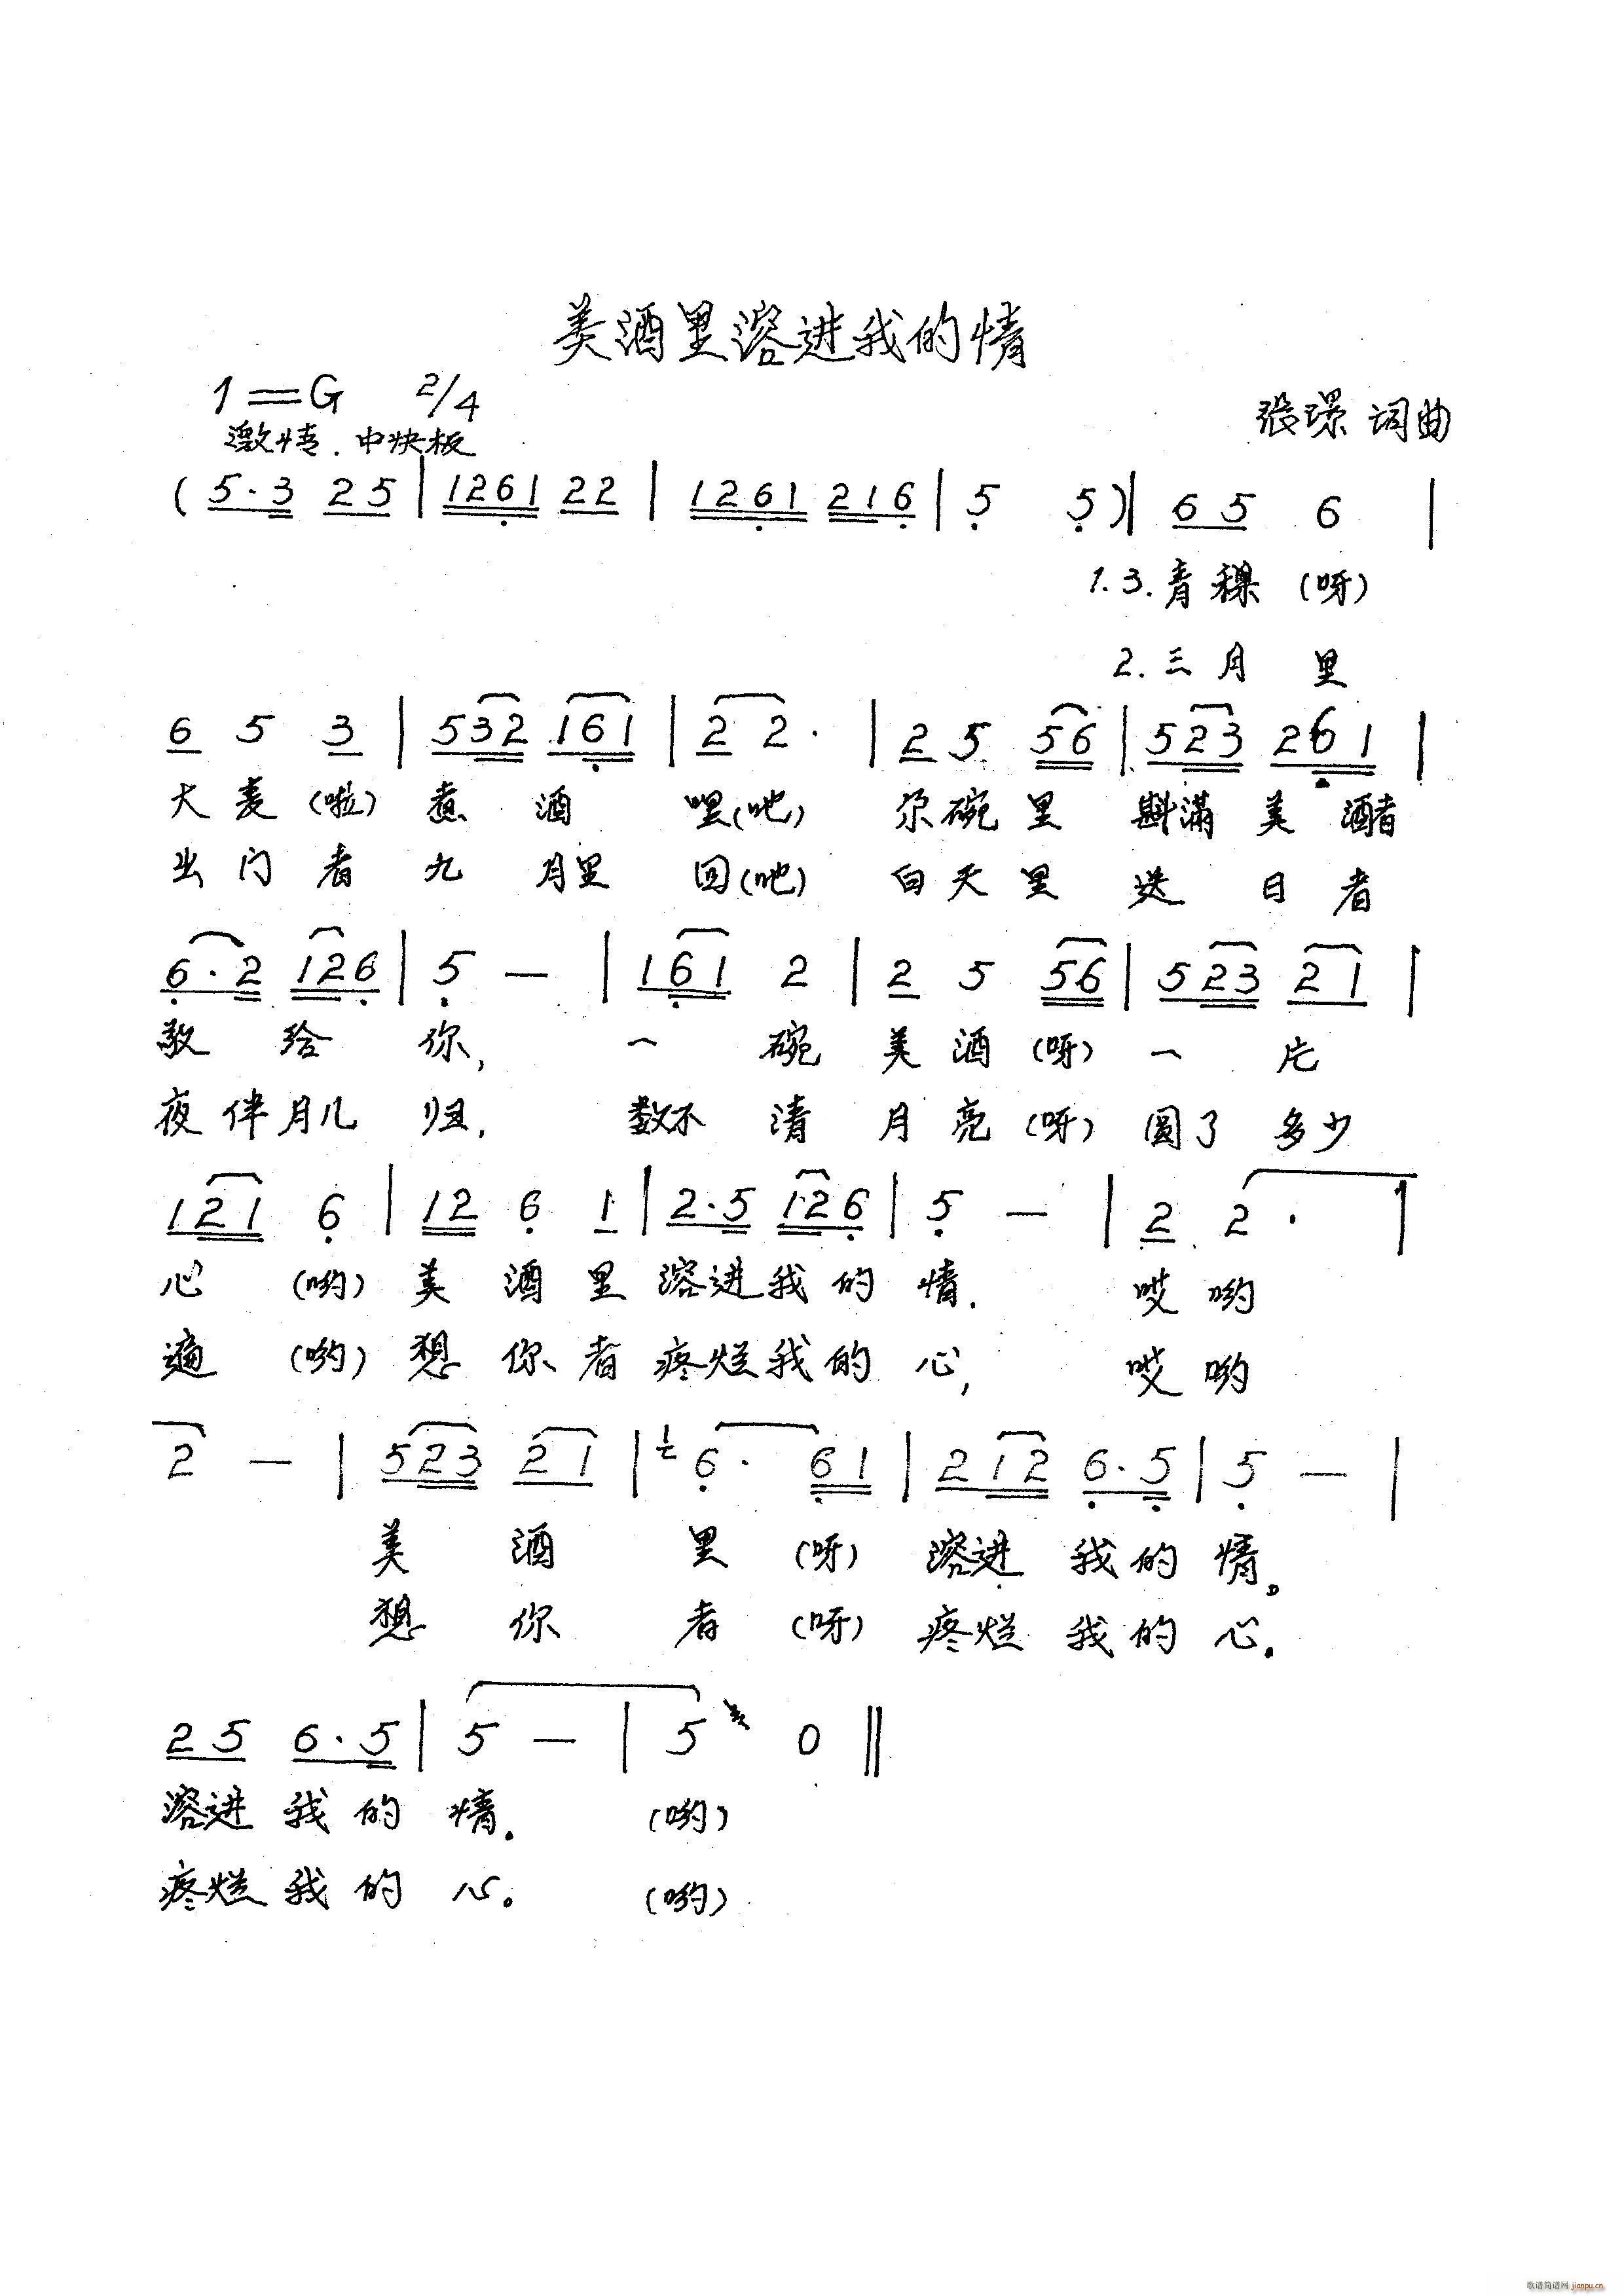 美酒里溶进我的情
1=G 2/4
张璟 词曲
激情.中快板
(5·3 25|1261 22|1261 216|5 5)|65 6|
1.3.青稞(呀)
2.三月里
6 5 3|532 161|2 2·|2 5 56|523 261|
大麦(啦)煮酒嘿(吔)尕碗里斟满美酒者
出门者九月里回(吔)白天里送日者
6·2 126|5 —|161 2|2 5 56|523 21|
敬给你,一碗美酒(呀)一片
夜伴月儿归,数不清月亮(呀)圆了多少
121 6|12 6 1|2·5 126|5 —|2 2·|
心(哟)美酒里溶进我的情.哎哟
遍(哟)想你者疼烂我的心,哎哟
2 —|523 21|1/2 6· 61|212 6·5|5 —|
美酒里(呀)溶进我的情。
想你者(呀)疼烂我的心.
25 6·5|5 —|5 0‖
溶进我的情.(哟)
疼烂我的心。(哟)
歌谱简谱网
jianpu.cn